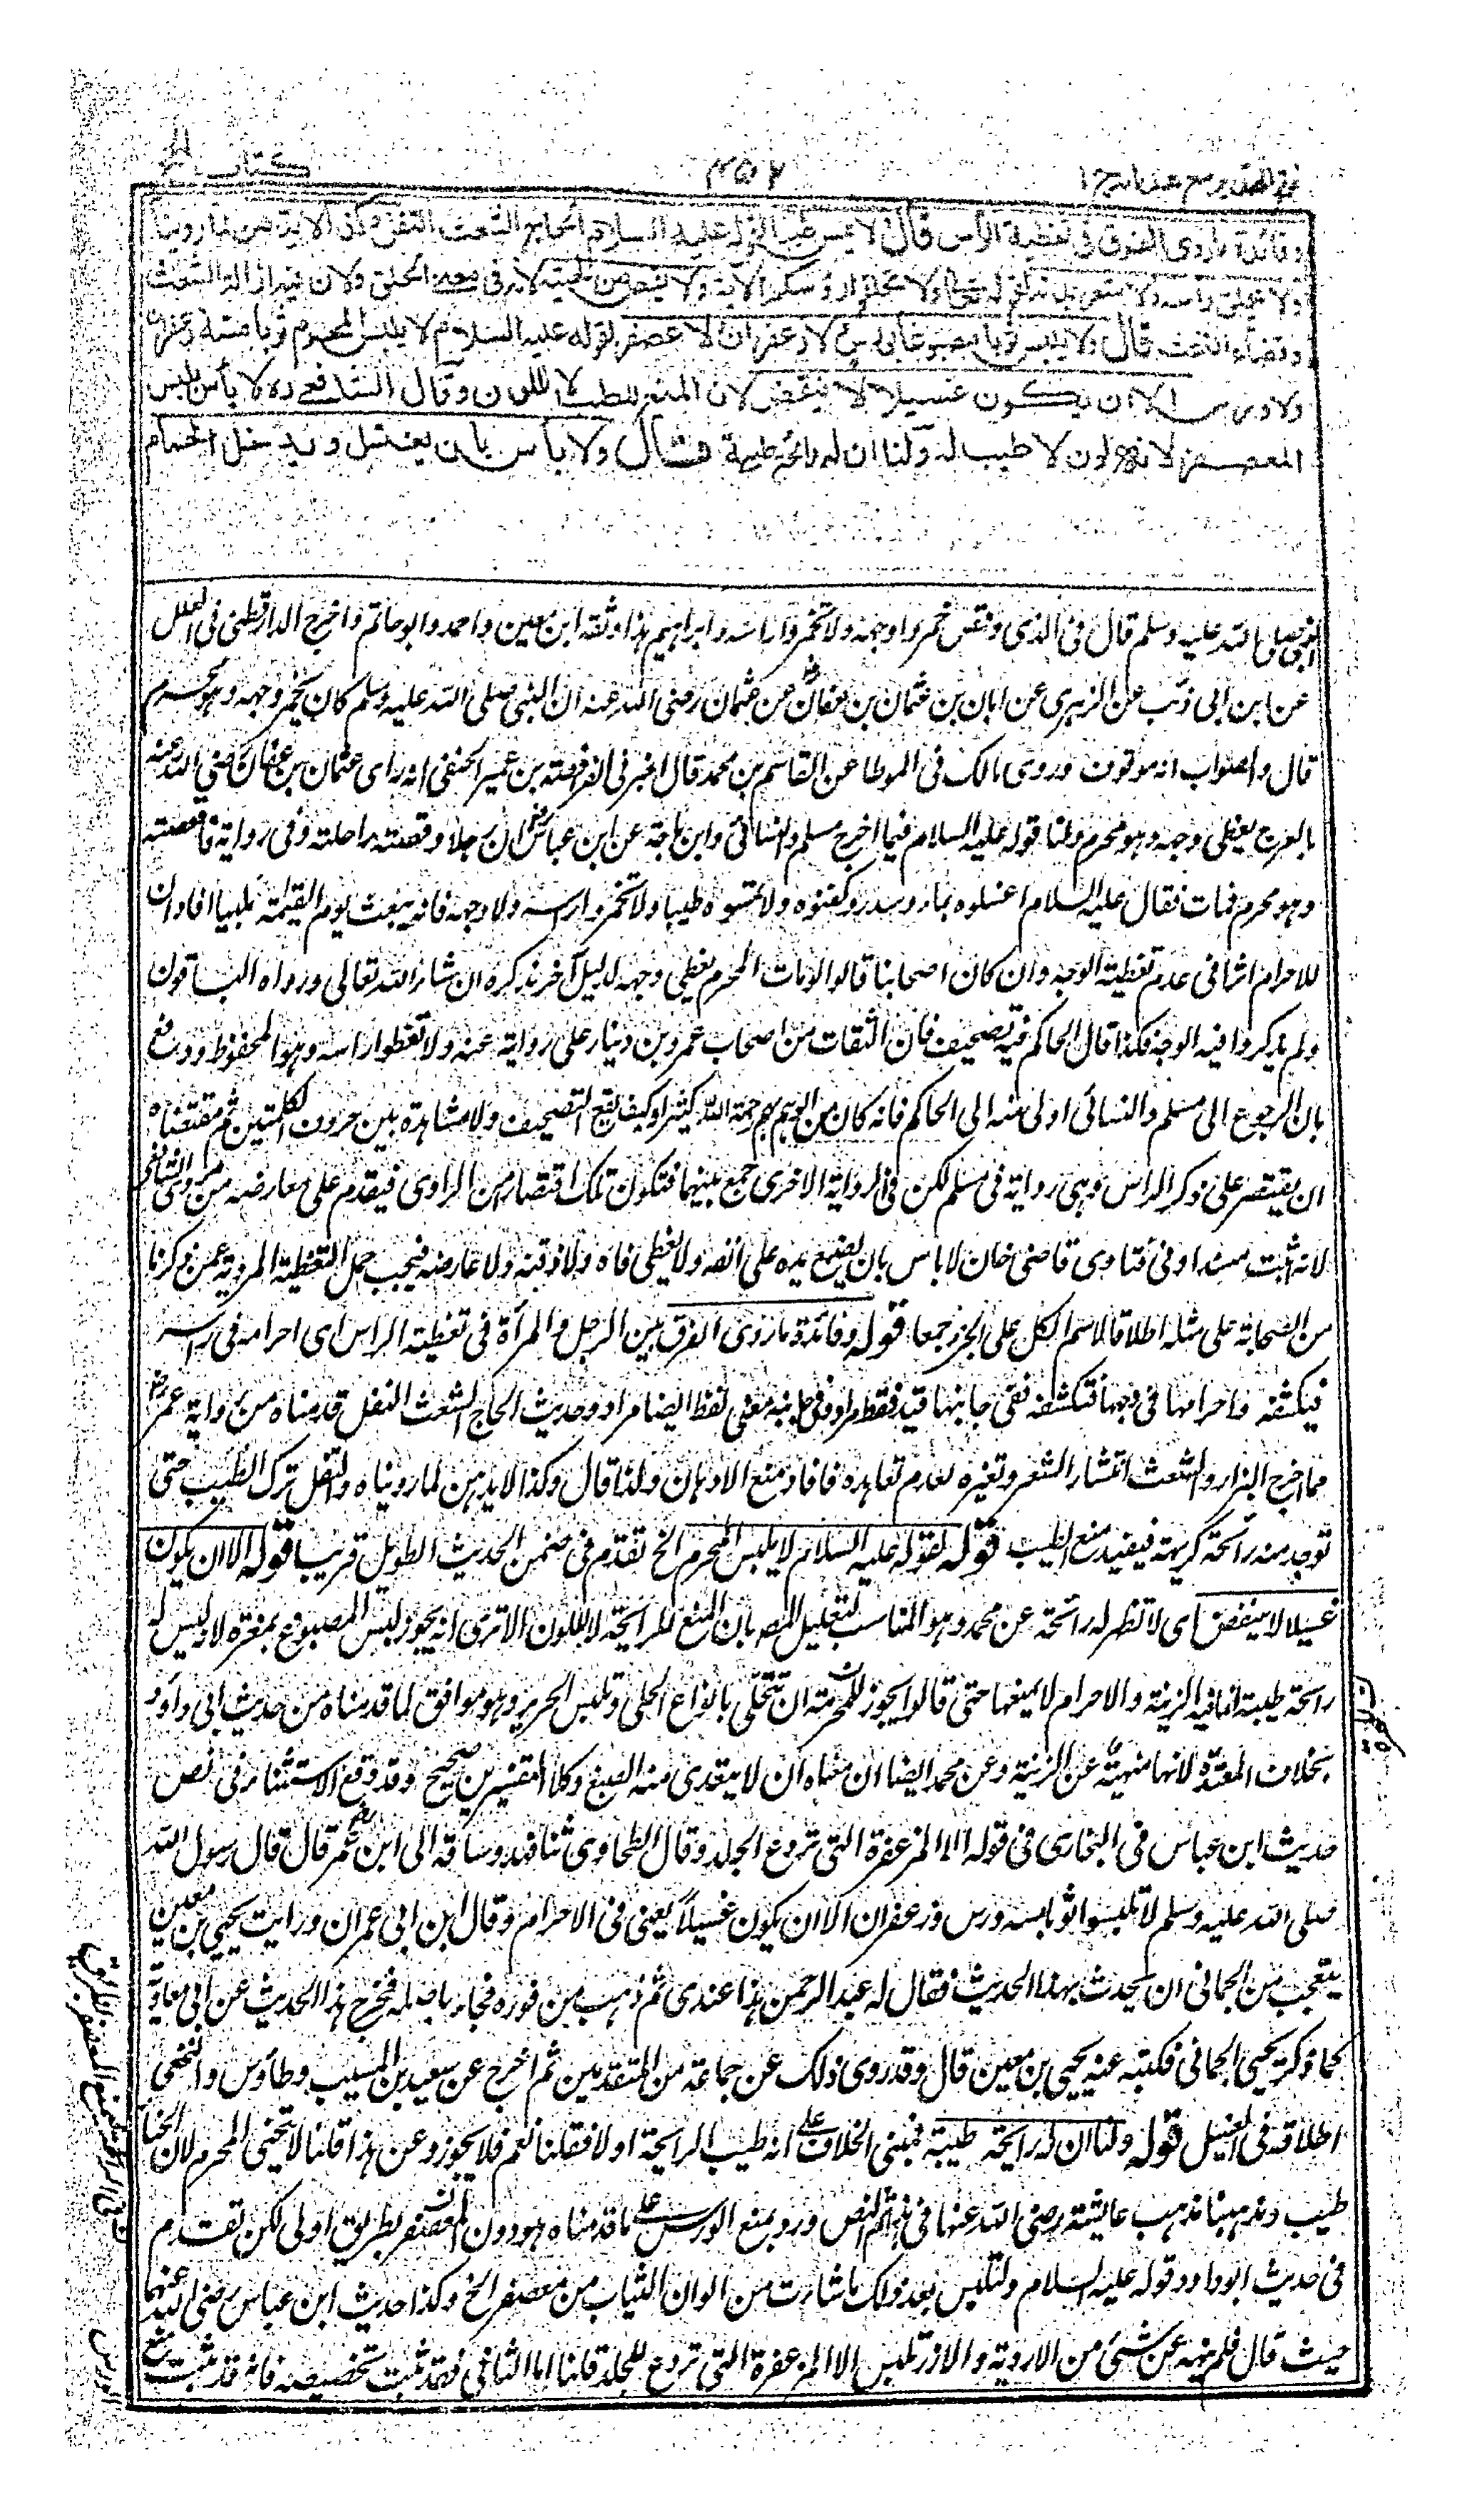 فتح القدير مع هدايه ج ١
٤٥٢
كتاب الحج
وفائدة ما روى الفرق فى تغطية الرأس قال ولا يمس طيبا لقوله عليه السلام الحاج الشعث التفل وكذا لا يدهن لما روينا
ولا يحلق رأسه ولا شعر بدنه لقوله تعالى ولا تحلقوا رؤسكم الآية ولا يقص من لحيته لانه فى معنى الحلق ولان فيه ازالة الشعث
وقضاء التفث قال ولا يلبس ثوبا مصبوغا بورس ولا زعفران ولا عصفر لقوله عليه السلام لا يلبس المحرم ثوبا مسه زعفران
ولا ورس الا ان يكون غسيلا لا ينفض لان المنع للطيب لا للون وقال الشافعى ره لا بأس بلبس
المعصفر لانه لون لا طيب له ولنا ان له رائحة طيبة قال ولا بأس بان يغتسل ويدخل الحمام
النبى صلى الله عليه وسلم قال فى الذى وقص خمروا وجهه ولا تخمروا راسه وابراهيم هذا وثقه ابن معين واحمد وابو حاتم واخرج الدارقطنى فى العلل
عن ابن ابى ذئب عن الزهرى عن ابان بن عثمان بن عفان عن عثمان رضى الله عنه ان النبى صلى الله عليه وسلم كان يخمر وجهه وهو محرم
قال والصواب انه موقوف وروى مالك فى الموطا عن القاسم بن محمد قال اخبرنى الفرافصة بن عمير الحنفى انه راى عثمان بن عفان رضى الله عنه
بالعرج يغطى وجهه وهو محرم ولنا قوله عليه السلام فيما اخرج مسلم والنسائى وابن ماجة عن ابن عباس رض ان رجلا وقصته راحلته وفى رواية فاقعصته
وهو محرم فمات فقال عليه السلام اغسلوه بماء وسدر وكفنوه ولا تمسوه طيبا ولا تخمروا راسه ولا وجهه فانه يبعث يوم القيمة ملبيا افاد ان
للاحرام اثرا فى عدم تغطية الوجه وان كان اصحابنا قالوا لو مات المحرم يغطى وجهه لدليل آخر نذكره ان شاء الله تعالى ورواه الباقون
ولم يذكروا فيه الوجه فلذا قال الحاكم فيه تصحيف فان الثقات من اصحاب عمرو بن دينار على رواية عنه ولا تغطوا راسه وهو المحفوظ ودفع
بان الرجوع الى مسلم والنسائى اولى منه الى الحاكم فانه كان من الوهم بهم رحمة الله كثيرا وكيف يقع التصحيف ولا مشابهة بين حروف الكلمتين ثم مقتضاه
ان يقتصر على ذكر الراس وهى رواية فى مسلم لكن فى الرواية الاخرى جمع بينهما فتكون تلك اقتصارا من الراوى فيقدم على معارضه من مروى الشافعى
لانه اثبت سندا وفى فتاوى قاضى خان لا باس بان يضع يده على انفه ولا يغطى فاه ولا ذقنه ولا عارضه فيجب حمل التغطية المروية عمن ذكرنا
من الصحابة على مثله اطلاقا لاسم الكل على الجزء جمعا قوله وفائدة ما روى الفرق بين الرجل والمرأة فى تغطية الراس اى احرامه فى راسه
فيكشفه واحرامها فى وجهها فتكشفه ففى جانبها قيد فقط مراد وفى جانبه معنى لفظ ايضا مراد وحديث الحاج الشعث التفل قدمناه من رواية عمر رض
مما اخرج البزار والشعث انتشار الشعر وتغيره لعدم تعاهده فافاد منع الادهان ولذا قال وكذا لا يدهن لما روينا والتفل ترك الطيب حتى
توجد منه رائحة كريهة فيفيد منع الطيب قوله لقوله عليه السلام لا يلبس المحرم الخ تقدم فى ضمن الحديث الطويل قريبا قوله الا ان يكون
غسيلا لا ينفض اى لا تظهر له رائحة عن محمد وهو المناسب لتعليل المص بان المنع للرائحة لا للون الا ترى انه يجوز لبس المصبوغ بمغرة لانه ليس له
رائحة طيبة انما فيه الزينة والاحرام لا يمنعها حتى قالوا يجوز للمحرمة ان تتحلى بانواع الحلى وتلبس الحرير وهو موافق لما قدمناه من حديث ابى داؤد
بخلاف المعتدة لانها منهية عن الزينة وعن محمد ايضا ان معناه ان لا يتعدى منه الصبغ وكلا التفسيرين صحيح وقد وقع الاستثناء فى نص
حديث ابن عباس فى البخارى فى قوله الا المزعفرة التى تردع الجلد وقال الطحاوى ثنا فهد وساقه الى ابن عمر رض قال قال رسول الله
صلى الله عليه وسلم لا تلبسوا ثوبا مسه ورس وزعفران الا ان يكون غسيلا يعنى فى الاحرام وقال ابن ابى عمران ورايت يحيى بن معين
يتعجب من الحمانى ان يحدث بهذا الحديث فقال له عبد الرحمن هذا عندى ثم ذهب من فوره فجاء باصله فخرج هذا الحديث عن ابى معاوية
كما ذكره يحيى الحمانى فكتبه عنه يحيى بن معين قال وقد روى ذلك عن جماعة من المتقدمين ثم اخرج عن سعيد بن المسيب وطاؤس والنخعى
اطلاقه فى الغسيل قوله ولنا ان له رائحة طيبة فمبنى الخلاف على انه طيب الرائحة او لا فقلنا نعم فلا يجوز وعن هذا قلنا لا يتحنى المحرم لان الحناء
طيب ومذهبنا مذهب عائشة رضى الله عنها فى هذا ثم النص ورد بمنع الورس على ما قدمناه وهو دون المعصفر بطريق اولى لكن تقدم
فى حديث ابو داود قوله عليه السلام ولتلبس بعد ذلك ما شاءت من الوان الثياب من معصفر الخ وكذا حديث ابن عباس رضى الله عنهما
حيث قال فلم ينه عن شئ من الاردية والازر تلبس الا المزعفرة التى تردع الجلد قلنا اما الثانى فقد ثبت تخصيصه فانه قد ثبت منع
الورس